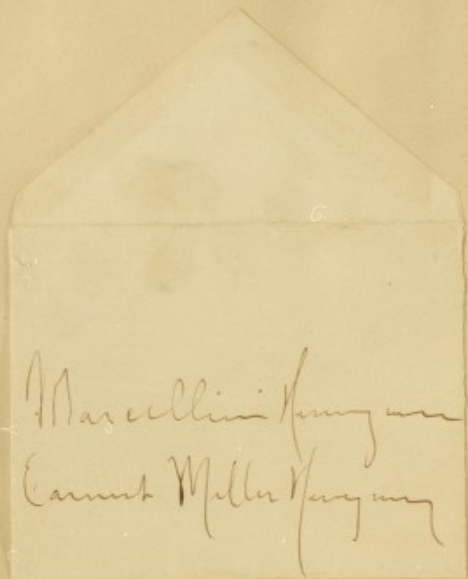 Marcelline Hemingway
Earnest Miller Hemingway